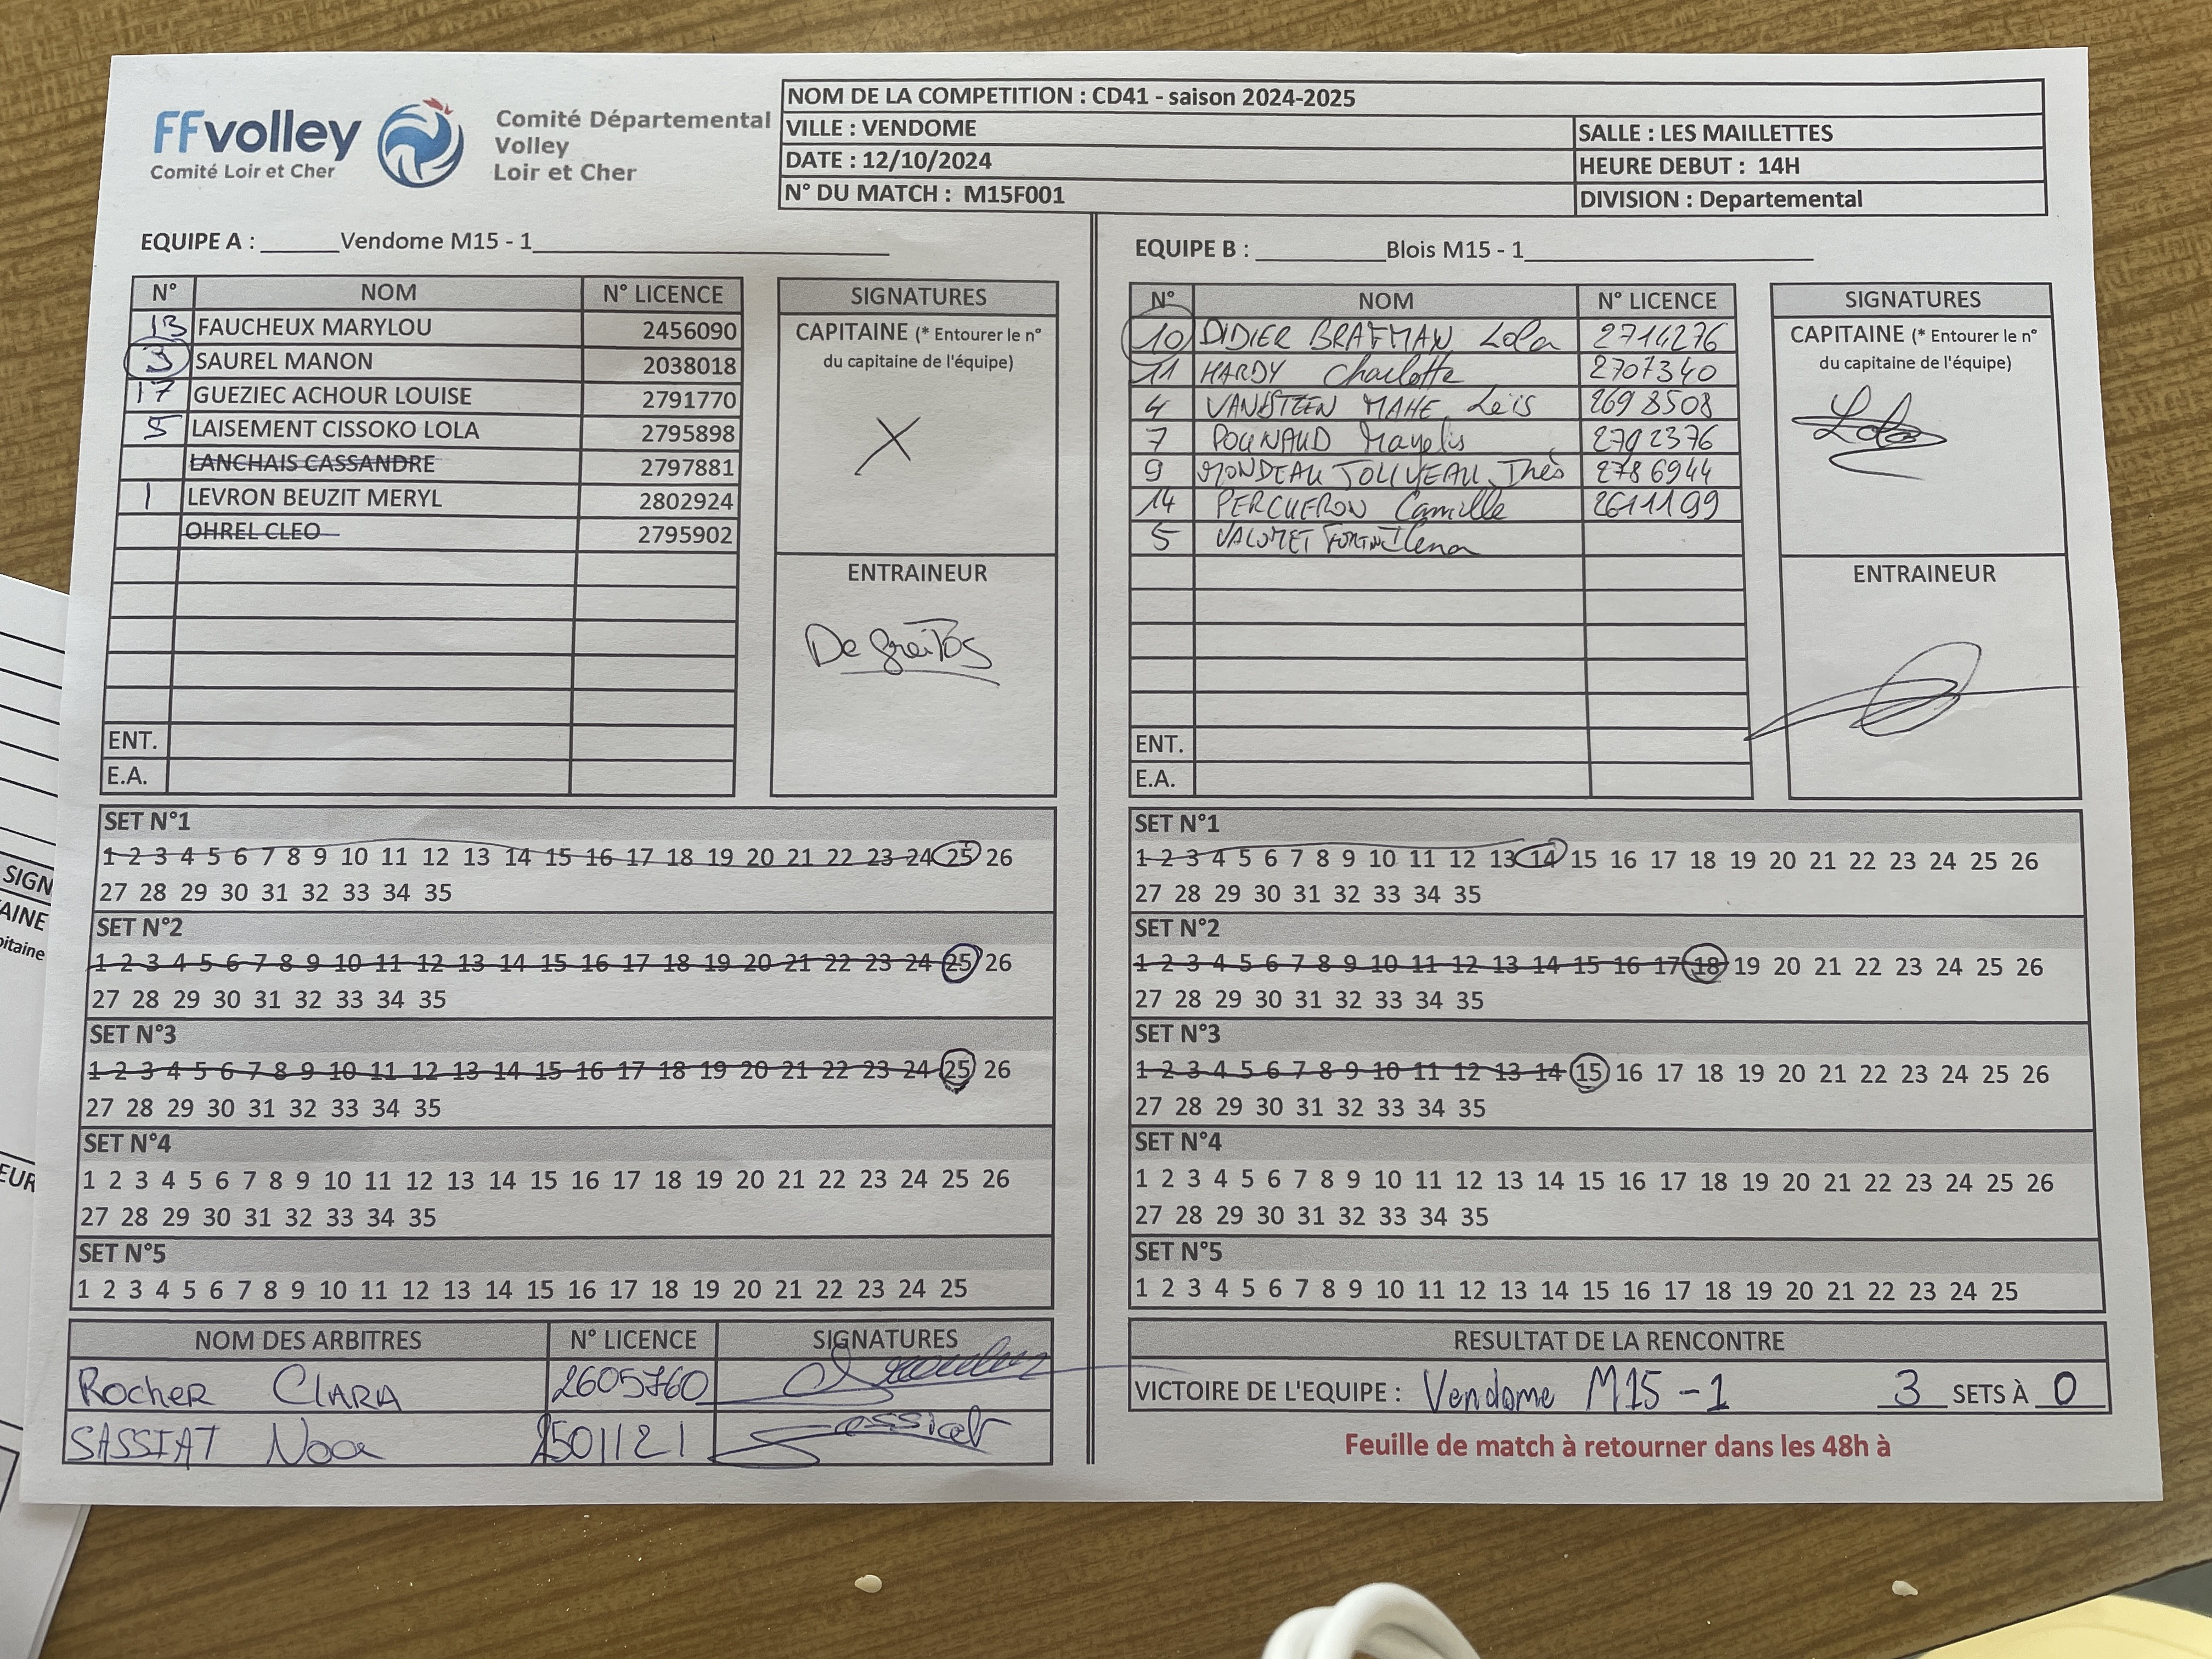 FFvolley
Comité Loir et Cher
Comité Départemental
Volley
Loir et Cher
NOM DE LA COMPETITION : CD41 - saison 2024-2025
VILLE : VENDOME
SALLE : LES MAILLETTES
DATE : 12/10/2024
HEURE DEBUT : 14H
N° DU MATCH : M15F001
DIVISION : Departemental
EQUIPE A : ______Vendome M15 - 1______
N° NOM N° LICENCE
13 FAUCHEUX MARYLOU 2456090
3 SAUREL MANON 2038018
17 GUEZIEC ACHOUR LOUISE 2791770
5 LAISEMENT CISSOKO LOLA 2795898
LANCHAIS CASSANDRE 2797881
1 LEVRON BEUZIT MERYL 2802924
OHREL CLEO 2795902
ENT.
E.A.
SIGNATURES
CAPITAINE (* Entourer le n°
du capitaine de l'équipe)
ENTRAINEUR
De freitos
EQUIPE B : ______Blois M15 - 1______
N° NOM N° LICENCE
10 DIDIER BRAFMAN Lola 2714276
11 HARDY Charlotte 2707340
4 MAHE 2698508
7 2792376
9 2786944
14 PERCHERON Camille 2611199
5 Ilena
ENT.
E.A.
SIGNATURES
CAPITAINE (* Entourer le n°
du capitaine de l'équipe)
Lola
ENTRAINEUR
SET N°1
1 2 3 4 5 6 7 8 9 10 11 12 13 14 15 16 17 18 19 20 21 22 23 24 25 26
27 28 29 30 31 32 33 34 35
SET N°2
1 2 3 4 5 6 7 8 9 10 11 12 13 14 15 16 17 18 19 20 21 22 23 24 25 26
27 28 29 30 31 32 33 34 35
SET N°3
1 2 3 4 5 6 7 8 9 10 11 12 13 14 15 16 17 18 19 20 21 22 23 24 25 26
27 28 29 30 31 32 33 34 35
SET N°4
1 2 3 4 5 6 7 8 9 10 11 12 13 14 15 16 17 18 19 20 21 22 23 24 25 26
27 28 29 30 31 32 33 34 35
SET N°5
1 2 3 4 5 6 7 8 9 10 11 12 13 14 15 16 17 18 19 20 21 22 23 24 25
SET N°1
1 2 3 4 5 6 7 8 9 10 11 12 13 14 15 16 17 18 19 20 21 22 23 24 25 26
27 28 29 30 31 32 33 34 35
SET N°2
1 2 3 4 5 6 7 8 9 10 11 12 13 14 15 16 17 18 19 20 21 22 23 24 25 26
27 28 29 30 31 32 33 34 35
SET N°3
1 2 3 4 5 6 7 8 9 10 11 12 13 14 15 16 17 18 19 20 21 22 23 24 25 26
27 28 29 30 31 32 33 34 35
SET N°4
1 2 3 4 5 6 7 8 9 10 11 12 13 14 15 16 17 18 19 20 21 22 23 24 25 26
27 28 29 30 31 32 33 34 35
SET N°5
1 2 3 4 5 6 7 8 9 10 11 12 13 14 15 16 17 18 19 20 21 22 23 24 25
NOM DES ARBITRES N° LICENCE SIGNATURES
ROCHER CLARA 2605760
SASSIAT Noa 2501121 Sassiat
RESULTAT DE LA RENCONTRE
VICTOIRE DE L'EQUIPE : Vendome M15 - 1 3 SETS À 0
Feuille de match à retourner dans les 48h à
SIGN
AINE
pitaine
EUR